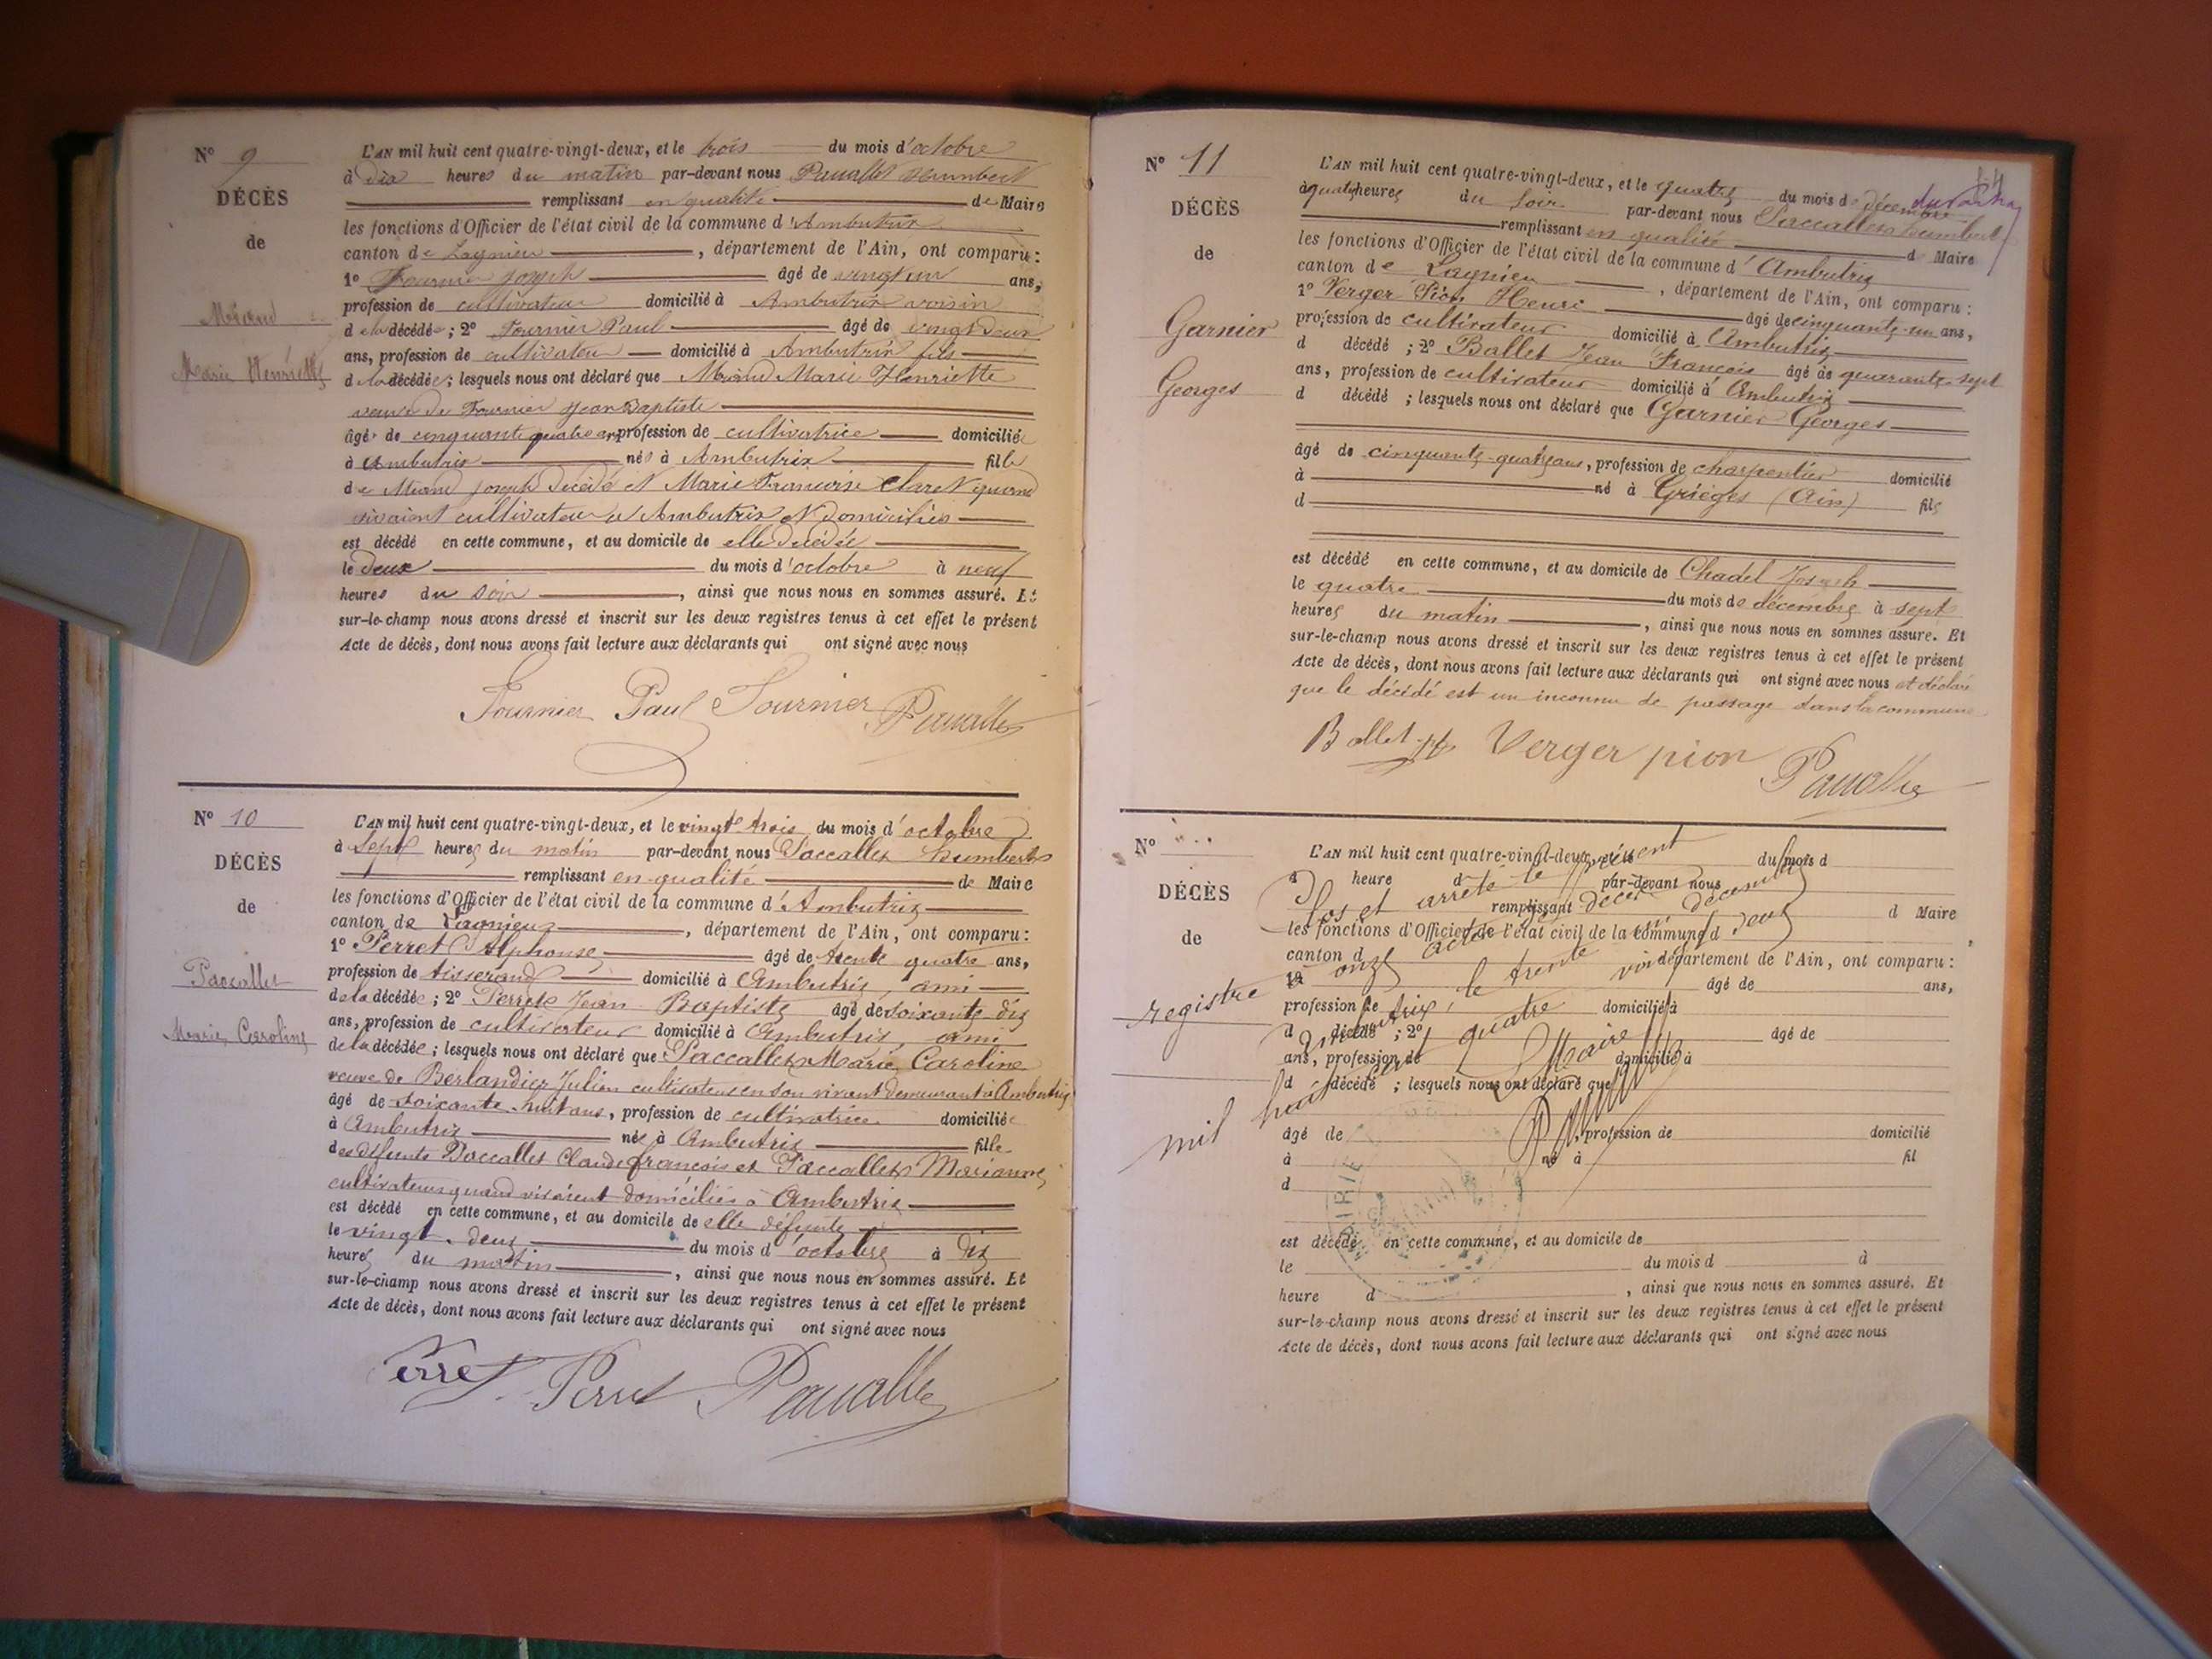 N° 9
DÉCÈS
de
Miand
Marie Henriette
L'AN mil huit cent quatre-vingt-deux, et le trois du mois d'octobre
à dix heures du matin par-devant nous Paccallet Humbert
remplissant en qualité de Maire
les fonctions d'Officier de l'état civil de la commune d'Ambutrix
canton de Lagnieu, département de l'Ain, ont comparu :
1° Fournier Joseph âgé de vingt un ans,
profession de cultivateur domicilié à Ambutrix voisin
de la décédée ; 2° Fournier Paul âgé de vingt deux
ans, profession de cultivateur domicilié à Ambutrix fils
de la décédée ; lesquels nous ont déclaré que Miand Marie Henriette
veuve de Fournier Jean Baptiste
âgée de cinquante quatre ans profession de cultivatrice domiciliée
à Ambutrix née à Ambutrix fille
de Miand Joseph décédé et Marie Francoise Claret quand
vivaient cultivateur a Ambutrix et domiciliés
est décédé en cette commune, et au domicile de elle décédée
le deux du mois d'octobre à neuf
heures du soir, ainsi que nous nous en sommes assuré. Et
sur-le-champ nous avons dressé et inscrit sur les deux registres tenus à cet effet le présent
Acte de décès, dont nous avons fait lecture aux déclarants qui ont signé avec nous
Fournier Paul Fournier Paccallet
N° 10
DÉCÈS
de
Paccallet
Marie Caroline
L'AN mil huit cent quatre-vingt-deux, et le vingt trois du mois d'octobre
à sept heures du matin par-devant nous Paccallet humbert
remplissant en qualité de Maire
les fonctions d'Officier de l'état civil de la commune d'Ambutrix
canton de Lagnieu, département de l'Ain, ont comparu :
1° Perret Alphonse âgé de trente quatre ans,
profession de tisserand domicilié à Ambutrix, ami
de la décédée ; 2° Perret Jean Baptiste âgé de soixante dix
ans, profession de cultivateur domicilié à Ambutrix, ami
de la décédée ; lesquels nous ont déclaré que Paccallet Marie Caroline
veuve de Berlandier Julien cultivateur en son vivant demeurant à Ambutrix
âgé de soixante-huit ans, profession de cultivatrice domiciliée
à Ambutrix née à Ambutrix fille
des défunts Paccallet Claude françois et Paccallet Marianne
cultivateurs quand vivaient domiciliés à Ambutrix
est décédé en cette commune, et au domicile de elle défunte
le vingt-deux du mois d'octobre à dix
heures du matin, ainsi que nous nous en sommes assuré. Et
sur-le-champ nous avons dressé et inscrit sur les deux registres tenus à cet effet le présent
Acte de décès, dont nous avons fait lecture aux déclarants qui ont signé avec nous
Perret Perret Paccallet
N° 11
DÉCÈS
de
Garnier
Georges
L'AN mil huit cent quatre-vingt-deux, et le quatre du mois de décembre
à quatre heures du soir par-devant nous Paccallet humbert
remplissant en qualité d Maire
les fonctions d'Officier de l'état civil de la commune d'Ambutrix
canton de Lagnieu, département de l'Ain, ont comparu :
1° Verger Pion Henri âgé de cinquante-un ans,
profession de cultivateur domicilié à Ambutrix
d décédé ; 2° Ballet Jean François âgé de quarante-sept
ans, profession de cultivateur domicilié à Ambutrix
d décédé ; lesquels nous ont déclaré que Garnier Georges
âgé de cinquante-quatre ans, profession de charpentier domicilié
à né à Grièges (Ain) fils
d
est décédé en cette commune, et au domicile de Chadel Joseph
le quatre du mois de décembre à sept
heures du matin, ainsi que nous nous en sommes assuré. Et
sur-le-champ nous avons dressé et inscrit sur les deux registres tenus à cet effet le présent
Acte de décès, dont nous avons fait lecture aux déclarants qui ont signé avec nous et déclaré
que le décédé est un inconnu de passage dans la commune
Ballet Verger pion Paccallet
N°
DÉCÈS
de
L'AN mil huit cent quatre-vingt-deux, et le du mois d
à heure d par-devant nous
remplissant d Maire
les fonctions d'Officier de l'état civil de la commune d
canton d département de l'Ain, ont comparu :
1° âgé de ans,
profession de domicilié à
d décédé ; 2° âgé de
ans, profession de domicilié à
d décédé ; lesquels nous ont déclaré que
âgé de profession de domicilié
à né à fil
d
est décédé en cette commune, et au domicile de
le du mois d à
heure d, ainsi que nous nous en sommes assuré. Et
sur-le-champ nous avons dressé et inscrit sur les deux registres tenus à cet effet le présent
Acte de décès, dont nous avons fait lecture aux déclarants qui ont signé avec nous
Clos et arrêté le présent
registre onze actes
Ambutrix, le trente décembre
mil huit cent quatre vingt deux
Maire
MAIRIE